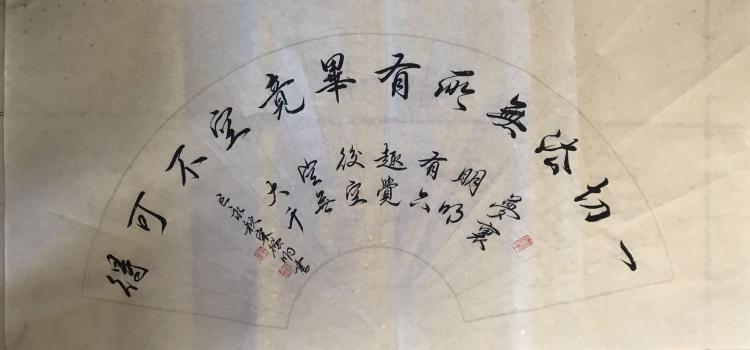 一切法無所有畢竟空不可得
夢裏
明明
有六
趣覺
後空
空無
大千
己亥秋 明書